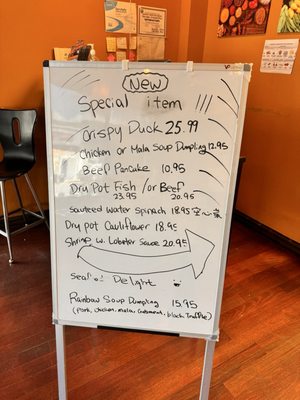 New
Special item
Crispy Duck 25.99
Chicken or Mala Soup Dumpling 12.95
Beef Pancake 10.95
Dry Pot Fish /or Beef
23.95 20.95
Sauteed Water Spinach 18.95
Dry pot Cauliflower 18.95
Shrimp w. Lobster Sauce 20.95
Delight
Rainbow Soup Dumpling 15.95
(pork, chicken, mala, black Truffle)